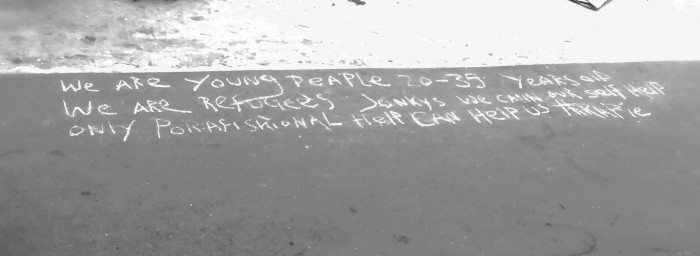 We ARe YOUNg PeAPle 20-35 YeARS Old
We ARe RefugeeS JONKYS We CANN OUR Self Help
ONlY PORAFISHIONAL Help CAN Help US THARAPIe